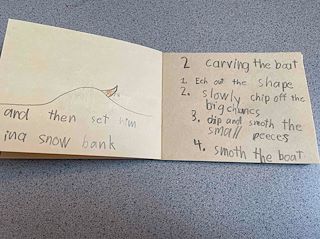 and then set him
in a snow bank
2 carving the boat
1. Ech out the shape
2. slowly chip off the
big chuncs
3. chip and smoth the
small peeces
4. smoth the boat